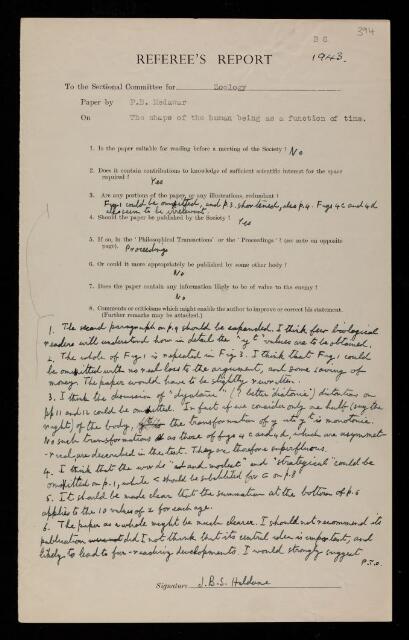 394
B 6.
REFEREE'S REPORT 1943.
To the Sectional Committee for Zoology
Paper by P.B. Medawar
On The shape of the human being as a function of time.
1. Is the paper suitable for reading before a meeting of the Society? No
2. Does it contain contributions to knowledge of sufficient scientific interest for the space
required? Yes
3. Are any portions of the paper, or any illustrations, redundant?
Fig 1 could be omitted, and p 3. shortened, also p. 4. Figs 4c and 4d
seem to be irrelevant.
4. Should the paper be published by the Society? Yes
5. If so, in the 'Philosophical Transactions' or the 'Proceedings'? (see note on opposite
page). Proceedings
6. Or could it more appropriately be published by some other body?
No
7. Does the paper contain any information likely to be of value to the enemy?
No
8. Comments or criticisms which might enable the author to improve or correct his statement.
(Further remarks may be attached.)
1. The second paragraph on p. 9 should be expanded. I think few biological
readers will understand how in detail the "yt" values are to be obtained.
2. The whole of Fig 1 is repeated in Fig 3. I think that Fig 1 could
be omitted with no real loss to the argument, and some saving of
money. The paper would have to be slightly rewritten.
3. I think the discussion of (? letter distance) distortion on
pp 11 and 12 could be omitted. In fact if we consider only one half (say the
right) of the body, the transformation of y into yt is monotonic.
No such transformations as those of figs 4c and 4d, which are asymmet-
-rical, are described in the text. They are therefore superfluous.
4. I think that the words "ad and nodest" and "strategical" could be
omitted on p. 1, while c should be substituted for C on p. 8
5. It should be made clear that the summation at the bottom of p. 6
applies to the 10 values of z for each age.
6. The paper as a whole might be much clearer. I should not recommend its
publication did I not think that its central idea is important, and
likely to lead to far-reaching developments. I would strongly suggest
P.T.O.
Signature J.B.S. Haldane